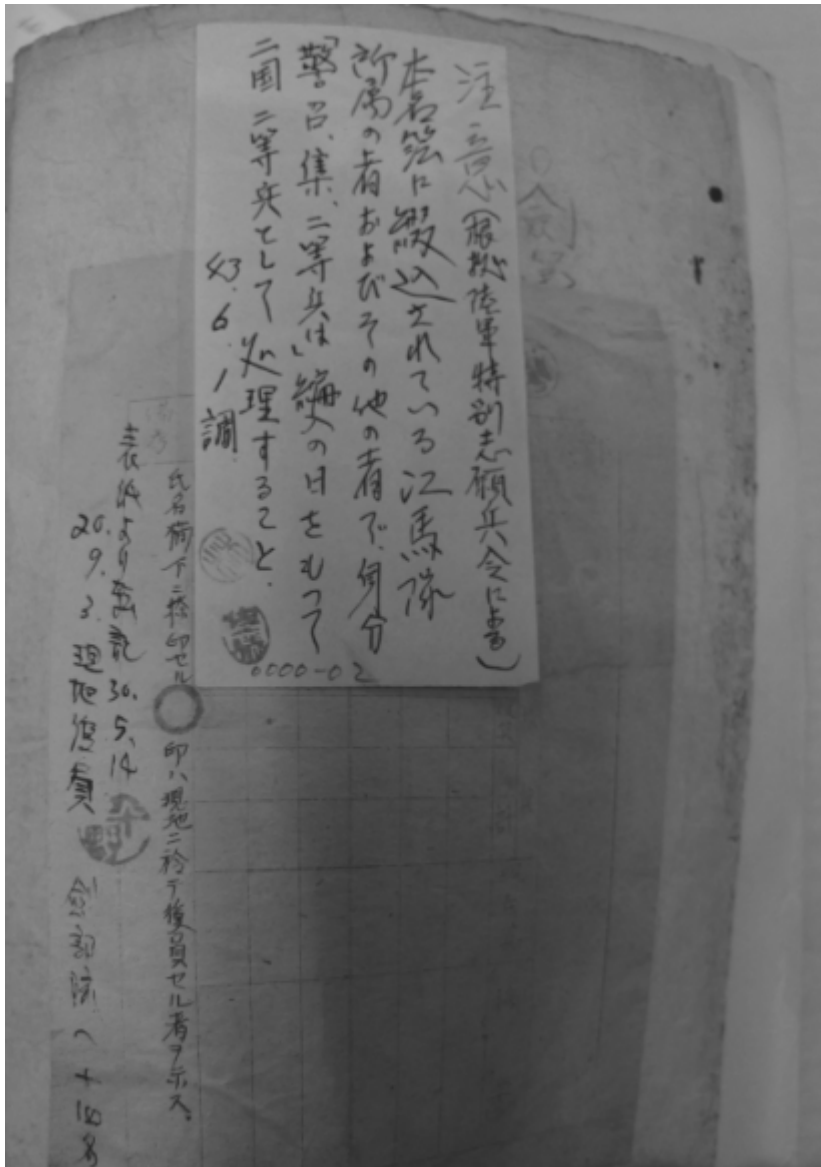 注意(根拠陸軍特別志願兵令による)
本名簿に綴込されている江馬隊
所属の者およびその他の者で、身分
「警、召、集、二等兵は」編入の日をもって
二国二等兵として処理すること、
43.6.1調
0000-02
氏名荷下ニ捺印セル 印ハ現地ニ於テ復員セル者ヲ示ス。
表紙より転記 30.5.14
20.9.3.現地復員